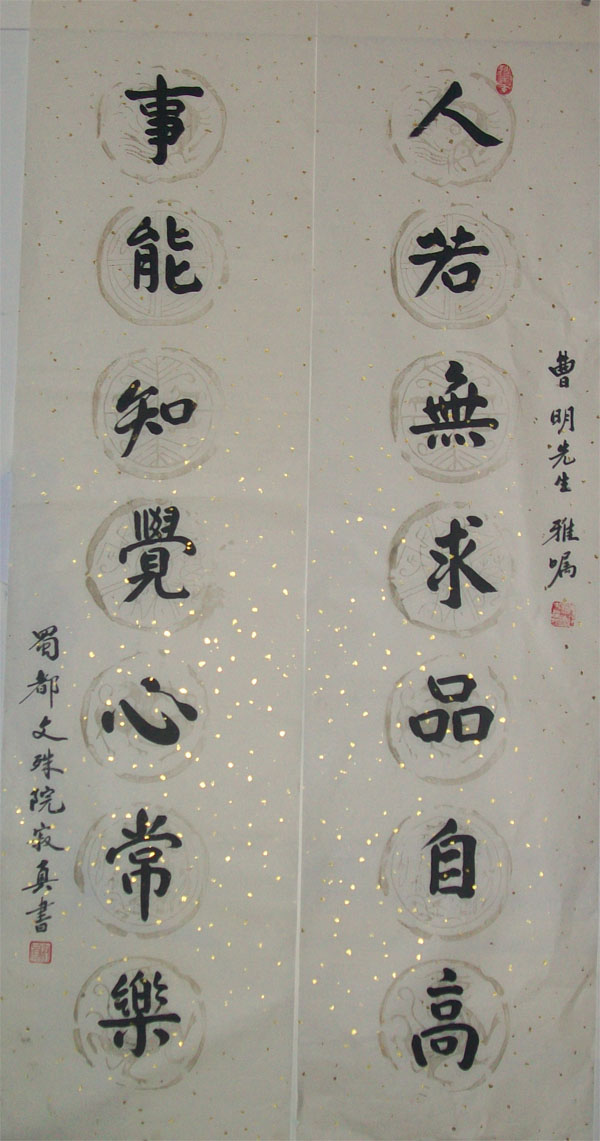 曹明先生雅嘱
人若無求品自高
事能知覺心常樂
蜀都文殊院寂真書